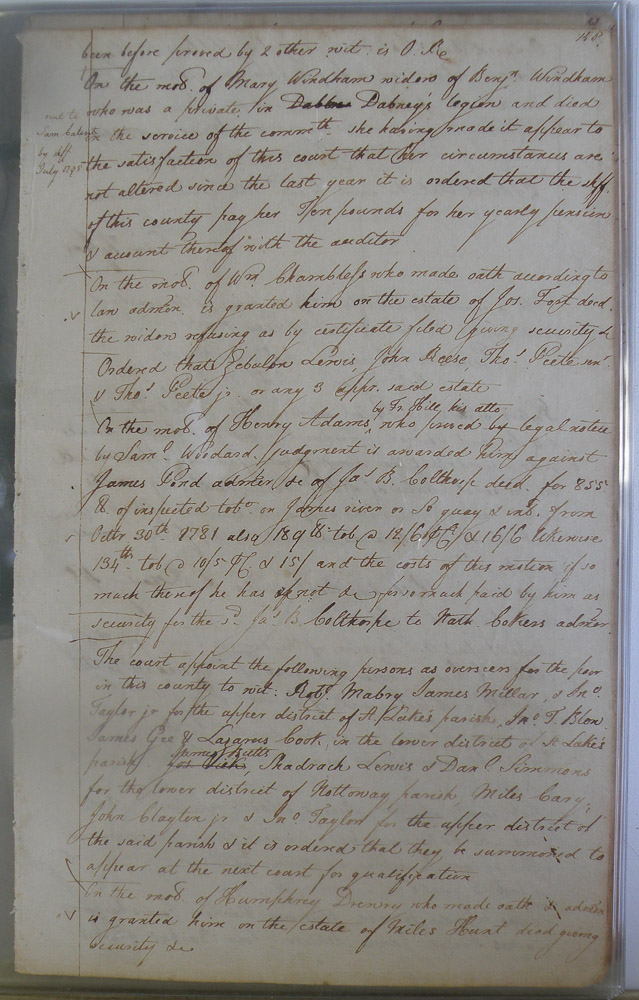 158
been before proved by 2 other wit. is O. R.
On the mot. of Mary Windham widow of Benjn. Windham
who was a private in Dabney's legion and died
in the service of the commth. she having made it appear to
the satisfaction of this court that her circumstances are
not altered since the last year it is ordered that the shff.
of this county pay her Ten pounds for her yearly pension
& account thereof with the auditor
July 1795
On the mot. of Wm. Chambless who made oath according to
law admon. is granted him on the estate of Jos. Fort decd.
the widow refusing as by certificate filed giving security &
Ordered that Zebulon Lewis, John Reese, Thos. Peete senr.
& Thos. Peete jr. or any 3 appr. said estate
by Fr. Hill, his atto.
On the mot. of Henry Adams, who proved by legal notice
by Saml. Woodard. Judgment is awarded him against
James Pond admtor &c of Jas. B. Colthorpe decd. for 855
lb. of inspected tobo. on James river or So quay & int. from
Octr. 30th 1781 also 189 lb. tob @ 12/6 & 16/6 likewise
134 tob @ 10/5 & 15/ and the costs of this motion if so
much thereof he has not &c for so much paid by him as
security for the sd. Jas. B. Colthorpe to Nath. Cokers admor.
The court appoint the following persons as overseers for the poor
in this county to wit: Robt. Mabry James Millar, & Jno.
Taylor jr for the upper district of St. Lukes parish, Jno. T. Blow
James Gee & Lazarus Cook, in the lower district of St. Lukes
James Butts
parish. Shadrach Lewis & Danl. Simmons
for the lower district of Nottoway parish Miles Cary,
John Clayton jr & Jno. Taylor for the upper district of
the said parish & it is ordered that they be summoned to
appear at the next court for qualification
On the mot. of Humphrey Drewry who made oath & admon
is granted him on the estate of Miles Hunt decd giving
security &c